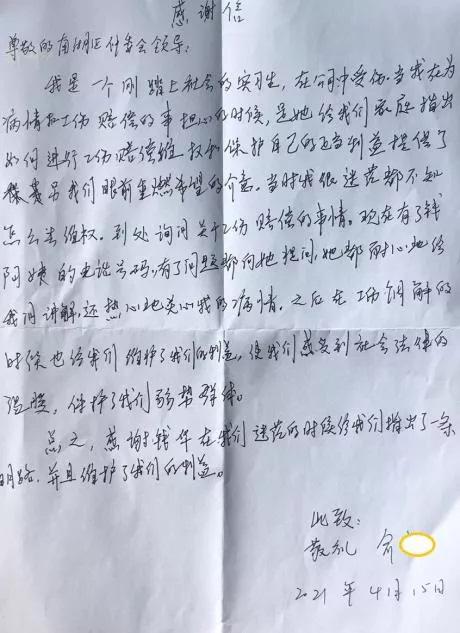 感谢信
尊敬的南湖区什雀会领导:
我是一个刚踏上社会的实习生,在公司中受伤.当我在为
病情和工伤赔偿的事担心的时候,是她给我们家庭指出
如何进行工伤赔偿维权和保护自己的正当利益提供了
另我们眼前重燃希望的介意。当时我很迷茫都不知
怎么去维权.到处询问关于工伤赔偿的事情.现在有了钱
阿姨的电话号码,有了问题都向她提问,她都耐心地给
我们讲解,还热心地关心我的病情.之后在工伤调解的
时候也给我们维护了我们的利益,使我们感受到社会法律的
温暖,保护了我们弱势群体。
总之,感谢钱华在我们迷茫的时候给我们指出了一条
明路.并且维护了我们的利益。
此致:
敬礼 俞
2021年4月15日